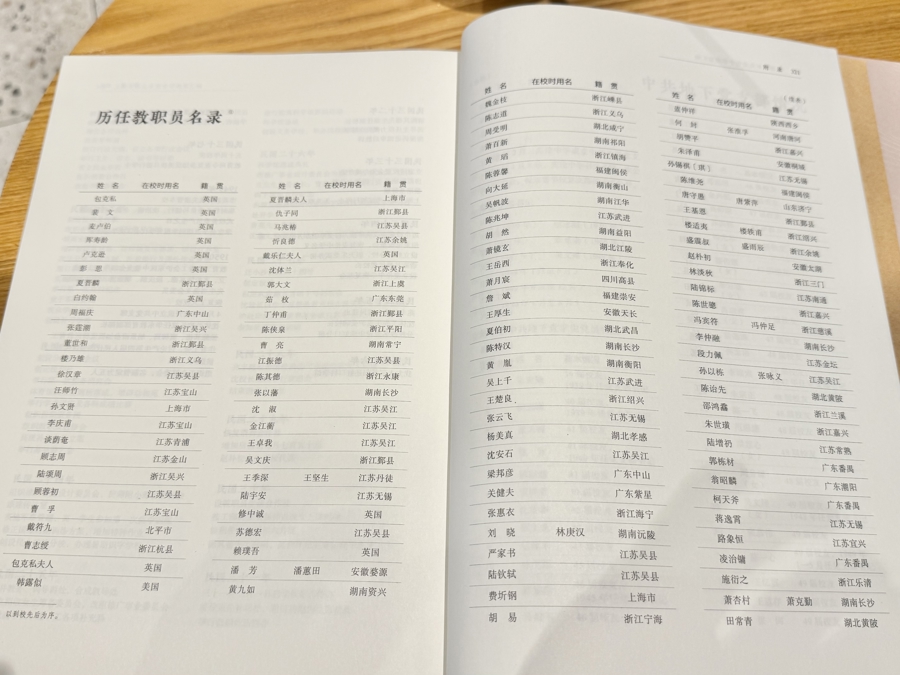 历任教职员名录
姓 名 在校时用名 籍 贯
包克私 英国
裴 文 英国
麦卢伯 英国
库寿龄 英国
卢克逊 英国
彭 思 英国
夏晋麟 浙江鄞县
白约翰 英国
周福庆 广东中山
张莲灏 浙江吴兴
董世和 浙江鄞县
楼乃雄 浙江义乌
徐汉章 江苏吴县
汪师竹 江苏宝山
孙文贤 上海市
李庆甫 江苏宝山
谈蔚奄 江苏青浦
顾志周 江苏金山
陆颂周 浙江吴兴
顾蓉初 江苏吴县
曹 孚 江苏宝山
戴符九 北平市
曹志绥 浙江杭县
包克私夫人 英国
韩露似 美国
以到校先后为序。
姓 名 在校时用名 籍 贯
夏晋麟夫人 上海市
仇子同 浙江鄞县
马兆椿 江苏吴县
哲良德 江苏余姚
戴乐仁夫人 英国
沈体兰 江苏吴江
郭大文 浙江上虞
茹 枚 广东东莞
丁仲甫 浙江鄞县
陈侠泉 浙江平阳
曹 亮 湖南常宁
江振德 江苏吴县
陈其德 浙江永康
张以藩 湖南长沙
沈 淑 江苏吴江
金江蘅 江苏吴江
王卓我 江苏吴江
吴文庆 浙江鄞县
王季深 王坚生 江苏丹徒
陆宇安 江苏无锡
修中诚 英国
苏德宏 江苏吴县
赖璞吾 英国
潘 芳 潘蕙田 安徽婺源
黄九如 湖南资兴
姓 名 在校时用名 籍 贯
魏金枝 浙江嵊县
陈志道 浙江义乌
周受明 湖北咸宁
萧百新 湖南祁阳
黄 瑫 浙江镇海
陈蓉馨 福建闽侯
向大延 湖南衡山
吴帆波 湖南江华
陈兆坤 江苏武进
胡 然 湖南益阳
萧镜玄 湖北江陵
王岳西 浙江奉化
萧月宸 四川高县
詹 斌 福建崇安
王厚生 安徽天长
夏伯初 湖北武昌
陈特汉 湖南长沙
黄 胤 湖南衡阳
吴上千 江苏武进
王楚良 浙江绍兴
张云飞 江苏无锡
杨美真 湖北孝感
沈安石 江苏吴江
梁邦彦 广东中山
关健夫 广东紫星
张惠衣 浙江海宁
刘 晓 林庚汉 湖南沅陵
严家书 江苏吴县
陆钦轼 江苏吴县
费圻钢 上海市
胡 易 浙江宁海
附 录
(续表)
姓 名 在校时用名 籍 贯
陕西西乡
何 封 张葱孚 河南唐河
胡赞平 浙江嘉兴
朱泽甫 安徽桐城
孙锡祺〔淇〕 江苏无锡
陈维尧 福建闽侯
唐守愚 唐紫伴 山东济宁
王基恩 浙江鄞县
楼适夷 楼轶甫 浙江绍兴
盛震叔 盛雨辰 浙江余姚
赵朴初 安徽太湖
林淡秋 浙江三门
陆锦标 江苏南通
陈世骢 浙江嘉兴
冯宾符 冯仲足 浙江慈溪
李仲融 湖南长沙
段力佩 江苏金坛
孙以栋 张咏义 江苏吴江
陈诒先 湖北黄陂
邵鸿鑫 浙江兰溪
朱世璜 浙江嘉兴
陆增礽 江苏常熟
郭栋材 广东番禺
翁昭麟 广东潮阳
柯天斧 广东番禺
蒋逸霄 江苏无锡
路象恒 江苏宜兴
凌治镛 广东番禺
施衍之 浙江乐清
萧杏村 萧克勤 湖南长沙
田常青 湖北黄陂